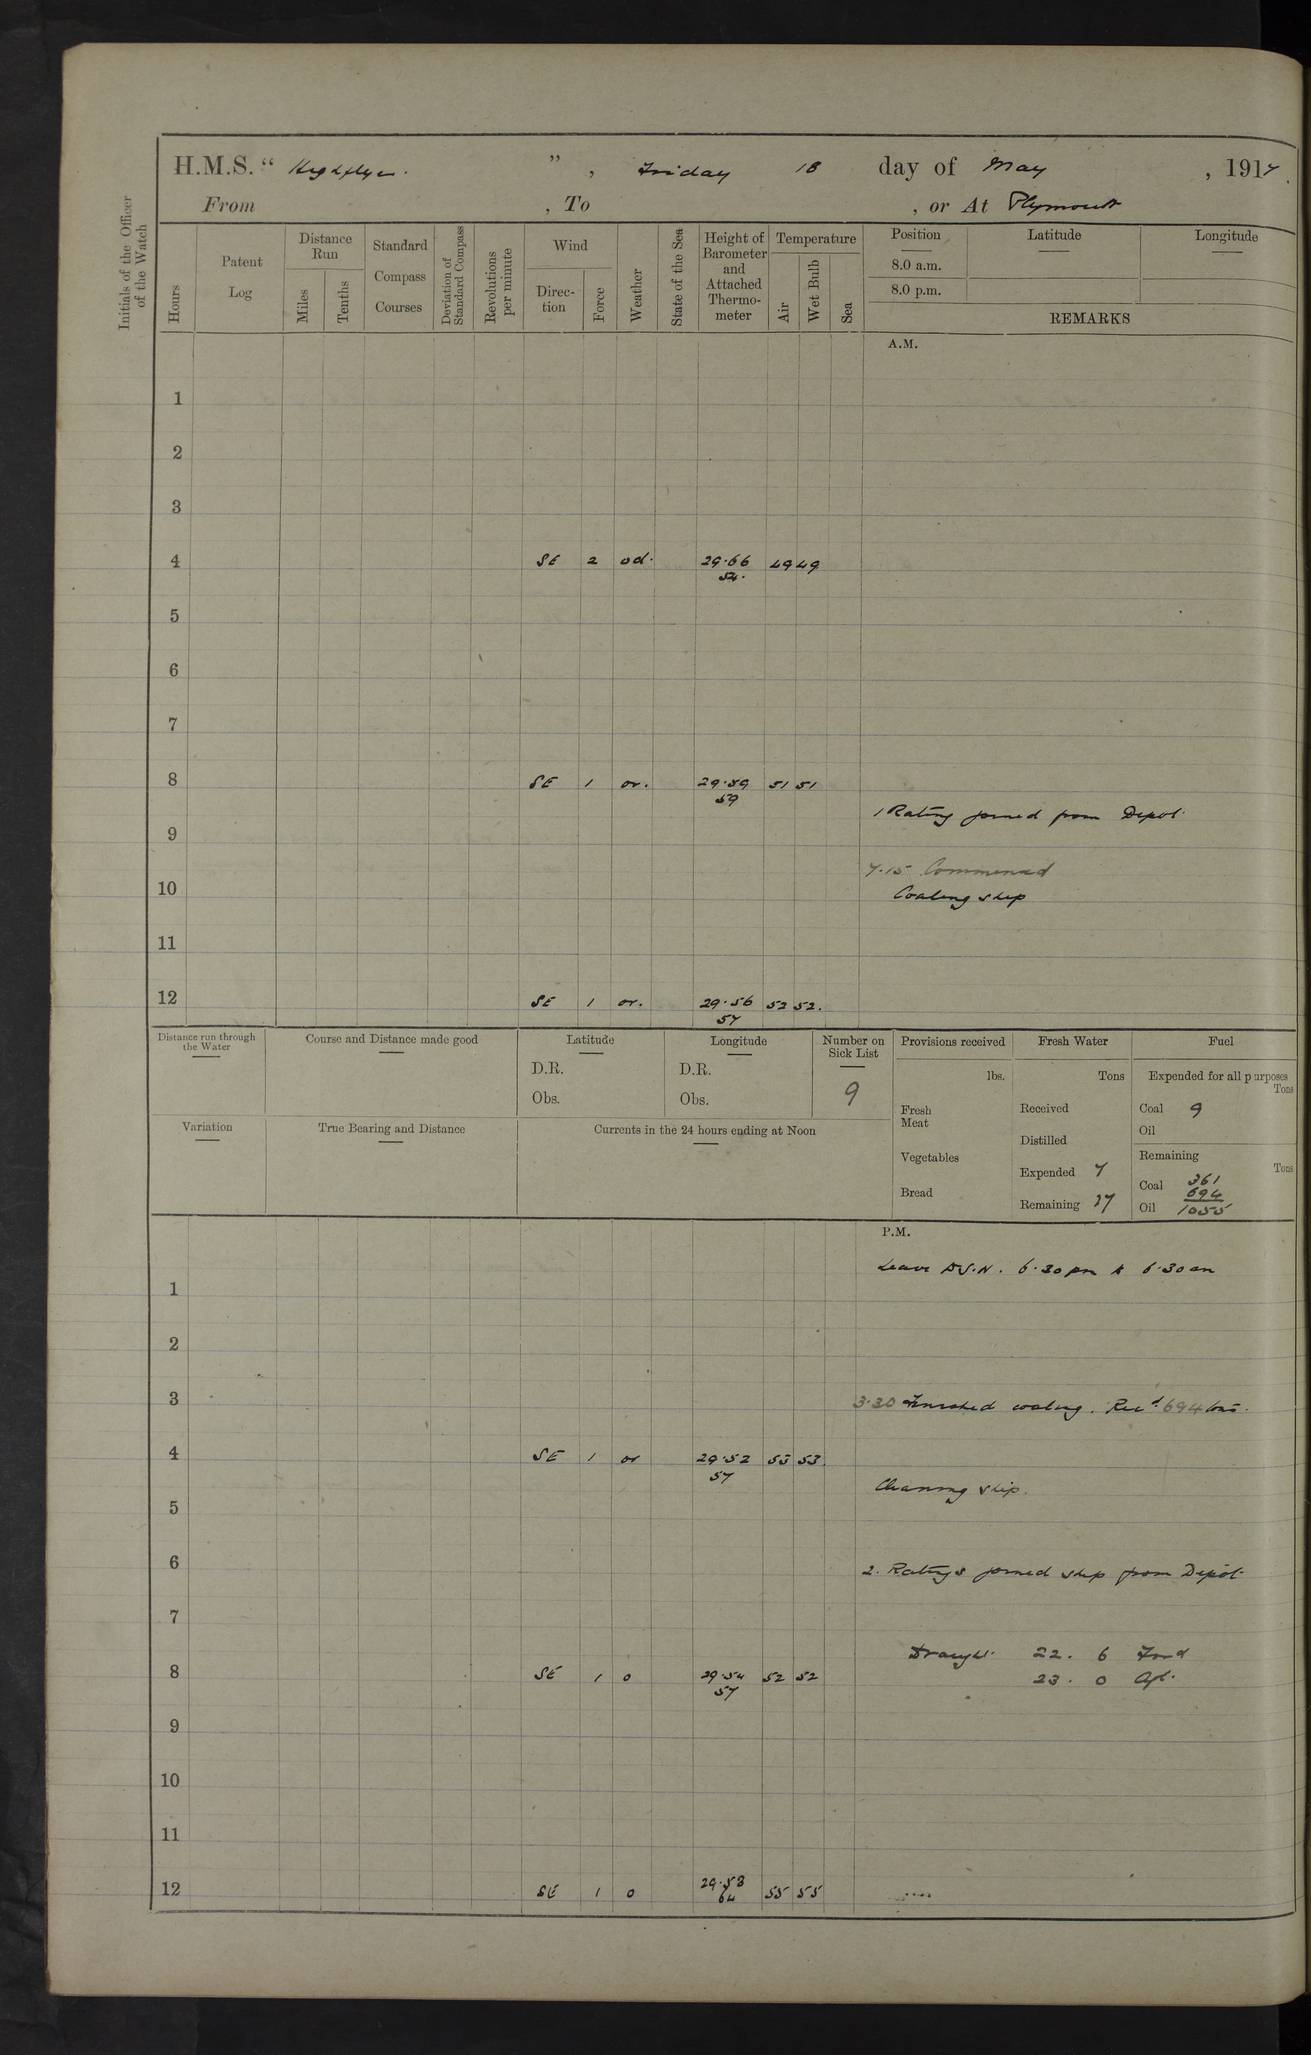 H.M.S. " Highflyer. ", Friday 18 day of May, 1917.
From , To , or At Plymouth
Initials of the Officer of the Watch
Hours
Patent Log
Distance Run
Miles
Tenths
Standard Compass Courses
Deviation of Standard Compass
Revolutions per minute
Wind
Direction
Force
Weather
State of the Sea
Height of Barometer and Attached Thermometer
Temperature
Air
Wet Bulb
Sea
Position
8.0 a.m.
8.0 p.m.
Latitude
Longitude
REMARKS
A.M.
1
2
3
4 SE 2 od. 29.66 49 49
54.
5
6
7
8 SE 1 or. 29.59 51 51
59
1 Rating joined from Depot.
9
7.15 Commenced
10
Coaling ship
11
12 SE 1 or. 29.56 52 52.
57
Distance run through the Water
Course and Distance made good
Latitude
D.R.
Obs.
Longitude
D.R.
Obs.
Number on Sick List
9
Provisions received
lbs.
Fresh Meat
Vegetables
Bread
Fresh Water
Tons
Received
Distilled
Expended 7
Remaining 27
Fuel
Expended for all purposes
Tons
Coal 9
Oil
Remaining
Tons
Coal 361
694
Oil 1055
Variation
True Bearing and Distance
Currents in the 24 hours ending at Noon
P.M.
Leave 6.30 pm to 6.30 am
1
2
3
3.30 Finished coaling. Recd. 694 tons.
4 SE 1 or 29.52 53 53.
57
Cleaning ship.
5
6
2. Ratings joined ship from Depôt.
7
Draught. 22. 6 Ford
8 SE 1 o 29.54 52 52
57
23. 0 Aft.
9
10
11
12 SE 1 o 29.53 55 55
64